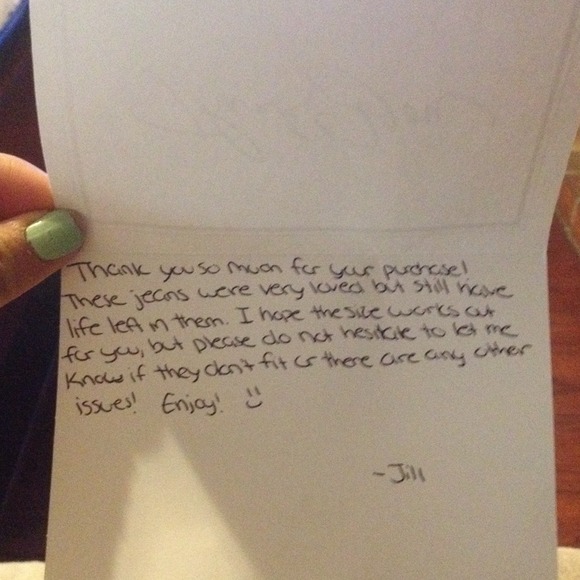 Thank you so much for your purchase!
These jeans were very loved but still have
life left in them. I hope the size works out
for you, but please do not hesitate to let me
know if they don't fit or there are any other
issues! Enjoy! :)
-Jill